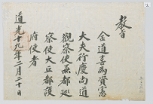 敎旨
金道喜爲資憲
大夫行慶尙道
觀察使兼都巡
察使大丘都護
府使者
道光十九年二月二十日